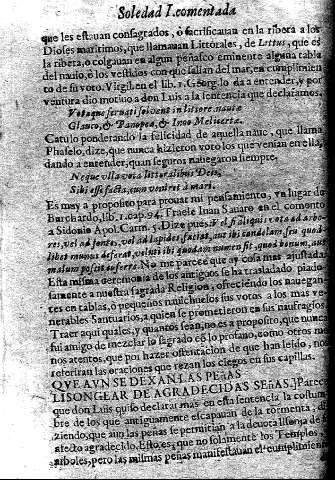 Soledad I. comentada
que les estauan consagrados, ò sacrificauan en la ribera a los
Dioses maritimos, que llamauan Littorales, de Littus, que es
la ribera, ò colgauan en algun peñasco eminente alguna tabla
del nauio, ò los vestidos con que salian del mar, en cumplimien
to de su voto. Virgil. en el lib. 1. Georg. lo da a entender, y por
ventura dio motiuo a don Luis a la sentencia que declaramos.
Votaque seruati soluent in littore nautæ
Glauco, & Panopeæ, & Inoo Melicertæ.
Catulo ponderando la felicidad de aquella naue, que llama
Phaselo, dize, que nunca hizieron voto los que venian en ella,
dando a entender, quan seguros nauegaron siempre.
Neque vlla vota littoralibus Deis,
Sibi esse facta, cum veniret à mari.
Es muy a proposito para prouar mi pensamiento, vn lugar de
Burchardo, lib. 1. cap. 94. Fraele Iuan Sauaro en el comento
a Sidonio Apol. Carm. 5. Dize pues: si fidelis vota ad arbo-
res, vel ad fontes, vel ad lapides faciat, aut ibi candelam, seu quod-
libet munus deferat, veluti ibi quoddam numen sit, quod bonum, aut
malum possit inferre. No me parece que ay cosa mas ajustada.
Esta misma ceremonia de los antiguos se ha trasladado piado-
samente a nuestra sagrada Religion, ofreciendo los nauegan-
tes en tablas, ò pequeños nauichuelos sus votos a los mas ve-
nerables Santuarios, a quien se prometieron en sus naufragios
Traer aqui quales, y quantos sean, no es a proposito, que nunca
fui amigo de mezclar lo sagrado cõ lo profano, como otros me
nos atentos, que por hazer ostentacion de que han leido, nos
referiran las oraciones que rezan los ciegos en sus capillas.
QVE AVN SE DEXAN LAS PEÑAS
LISONGEAR DE AGRADECIDAS SEÑAS.] Parece
que don Luis quiso declarar mas en esta sentencia la costum
bre de los que antiguamente escapauan de la tormenta, di-
ziendo, que aun las peñas se permitian a la deuota lisonja de
afecto agradecido. Esto es, que no solamente los Templos,
arboles, pero las mismas peñas manifestauan el cumplimien